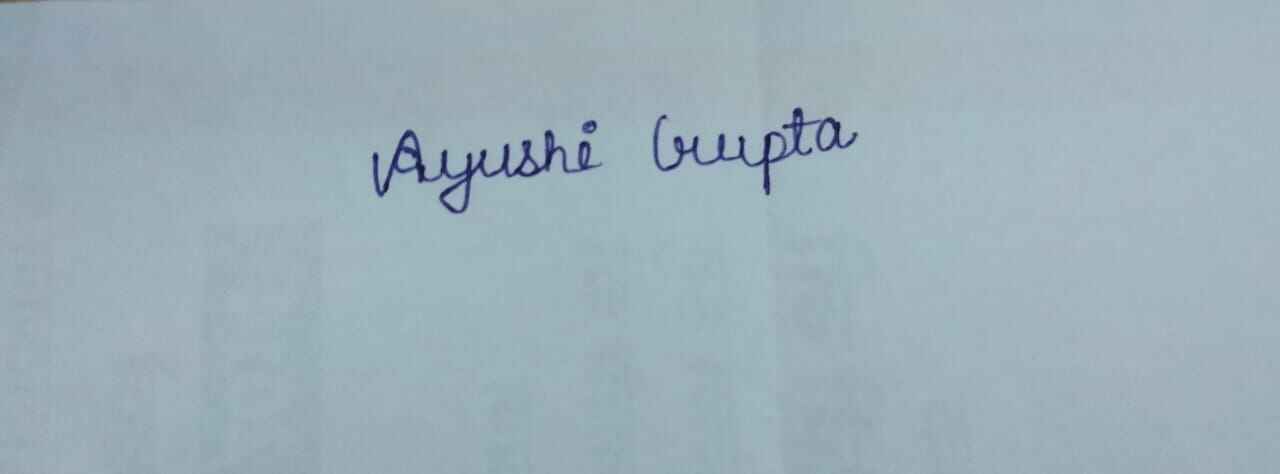 Ayushi Gupta